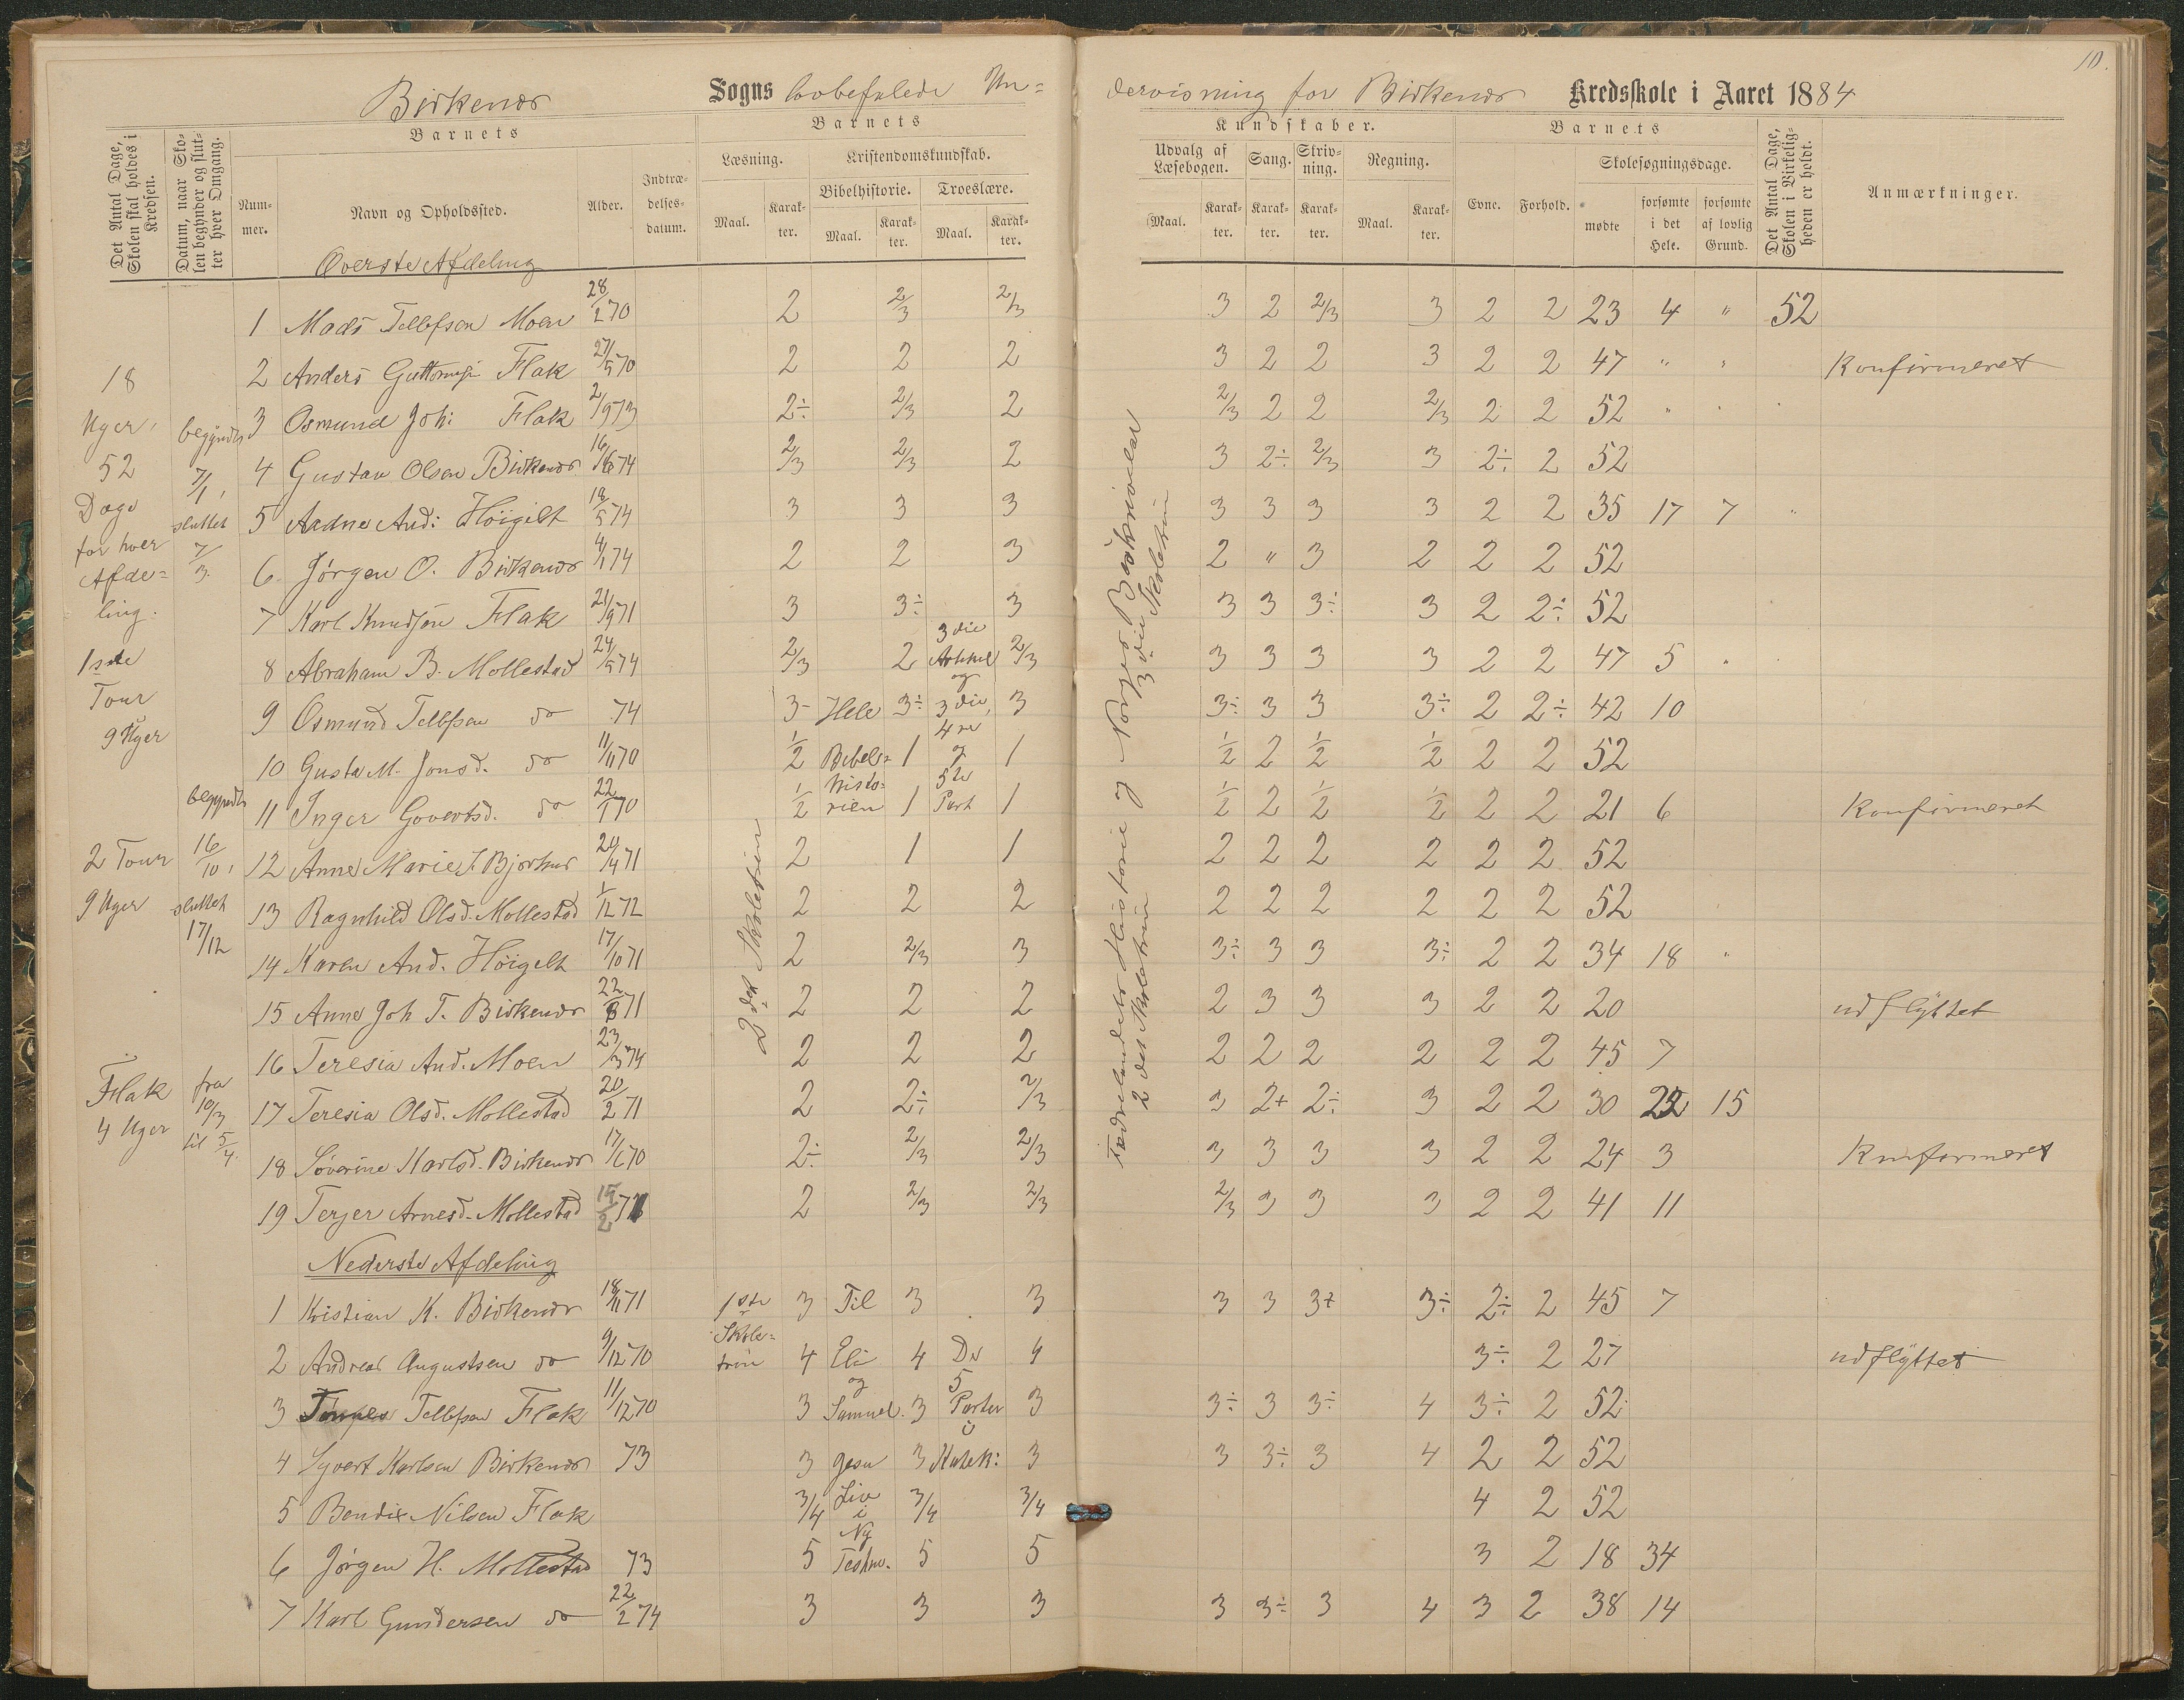 10.
Birkenæs Sogns lovbefalede Un=
dervisning for Birkenæs Kredsskole i Aaret 1884
Det Antal Dage, Skolen skal holdes i Kredsen.
Datum, naar Skolen begynder og slutter hver Omgang.
Barnets
Nummer.
Navn og Opholdssted.
Alder.
Indtrædelsesdatum.
Barnets
Læsning.
Maal. Karakter.
Kristendomskundskab.
Bibelhistorie.
Maal. Karakter.
Troeslære.
Maal. Karakter.
Kundskaber.
Udvalg af Læsebogen.
Maal. Karakter.
Sang.
Karakter.
Skrivning.
Karakter.
Regning.
Maal. Karakter.
Barnets
Evne. Forhold.
Skolesøgningsdage.
mødte
forsømte i det Hele.
forsømte af lovlig Grund.
Det Antal Dage, Skolen i Virkeligheden er holdt.
Anmærkninger.
18
Uger,
52
Dage
for hver
Afde=
ling.
1ste
Tour
9 Uger
2 Tour
9 Uger
Flak
4 Uger
begyndte
7/1,
sluttet
7/3.
begyndte
16/10,
sluttet
17/12
fra
10/3
til 5/4.
2det Skoletrin
Fædrelandets Historie og Norges Beskrivelse
2det Skoletrin 3die Skoletrin
Hele
Bibel=
histo=
rien
3die
Artikel
og
3die,
4re
og
5te
Part
Øverste Afdeling
1 Mads Tellefsen Moen 28/2 70 2 2/3 2/3 3 2 2/3 3 2 2 23 4 " 52
2 Anders Guttormsen Flak 27/5 70 2 2 2 3 2 2 3 2 2 47 " " Konfirmeret
3 Osmund Joh: Flak 2/9 73 2÷ 2/3 2 2/3 2 2 2/3 2 2 52
4 Gustav Olsen Birkenæs 16/6 74 2/3 2/3 2 3 2÷ 2/3 3 2÷ 2 52
5 Aadne And: Høigilt 18/5 74 3 3 3 3 3 3 3 2 2 35 17 7
6 Jørgen O. Birkenæs 4/1 74 2 2 3 2 " 3 2 2 2 52
7 Karl Knudsøn Flak 21/9 71 3 3÷ 3 3 3 3÷ 3 2 2÷ 52
8 Abraham B. Mollestad 24/5 74 2/3 2 2/3 3 3 3 3 2 2 47 5
9 Osmund Tellefsen do 74 3- 3÷ 3 3÷ 3 3 3÷ 2 2÷ 42 10
10 Gusta M. Jonsd. do 11/11 70 1/2 1 1 1/2 2 1/2 1/2 2 2 52
11 Inger Govertsd. do 22/1 70 1/2 1 1 1/2 2 1/2 1/2 2 2 21 6 Konfirmeret
12 Anne Marie J. Bjorhus 20/4 71 2 1 1 2 2 2 2 2 2 52
13 Ragnhild Olsd. Mollestad 1/12 72 2 2 2 2 2 2 2 2 2 52
14 Karen And. Høigelt 17/10 71 2 2/3 3 3÷ 3 3 3÷ 2 2 34 18
15 Anne Joh T. Birkenæs 22/8 71 2 2 2 2 3 3 3 2 2 20 udflyttet
16 Teresia And. Moen 23/3 74 2 2 2 2 2 2 2 2 2 45 7
17 Teresia Olsd. Mollestad 20/2 71 2 2÷ 2/3 3 2+ 2÷ 3 2 2 30 22 15
18 Søverine Karlsd. Birkenæs 17/1 70 2÷ 2/3 2/3 3 3 3 3 2 2 24 3 Konfirmeret
19 Terjer Arnesd. Mollestad 15/2 71 2 2/3 2/3 2/3 3 3 3 2 2 41 11
Nederste Afdeling
1 Kristian K. Birkenæs 18/11 71 1ste 3 Til 3 3 3 3 3+ 3÷ 2÷ 2 45 7
2 Andreas Augustsen do 9/12 70 Skole=trin 4 Eli 4 De 4 3÷ 2 27 udflyttet
3 Tønnes Tellefsen Flak 11/12 70 3 og Samuel. 3 5 Parter i 3 3÷ 3 3÷ 4 3÷ 2 52
4 Syvert Karlsen Birkenæs 73 3 Jesu 3 Katek: 3 3 3÷ 3 4 2 2 52
5 Bendix Nilsen Flak 3/4 Liv i 3/4 3/4 4 2 52
6 Jørgen H. Mollestad 73 5 Ny Testm. 5 5 3 2 18 34
7 Karl Gundersen do 22/2 74 3 3 3 3 3÷ 3 4 3 2 38 14